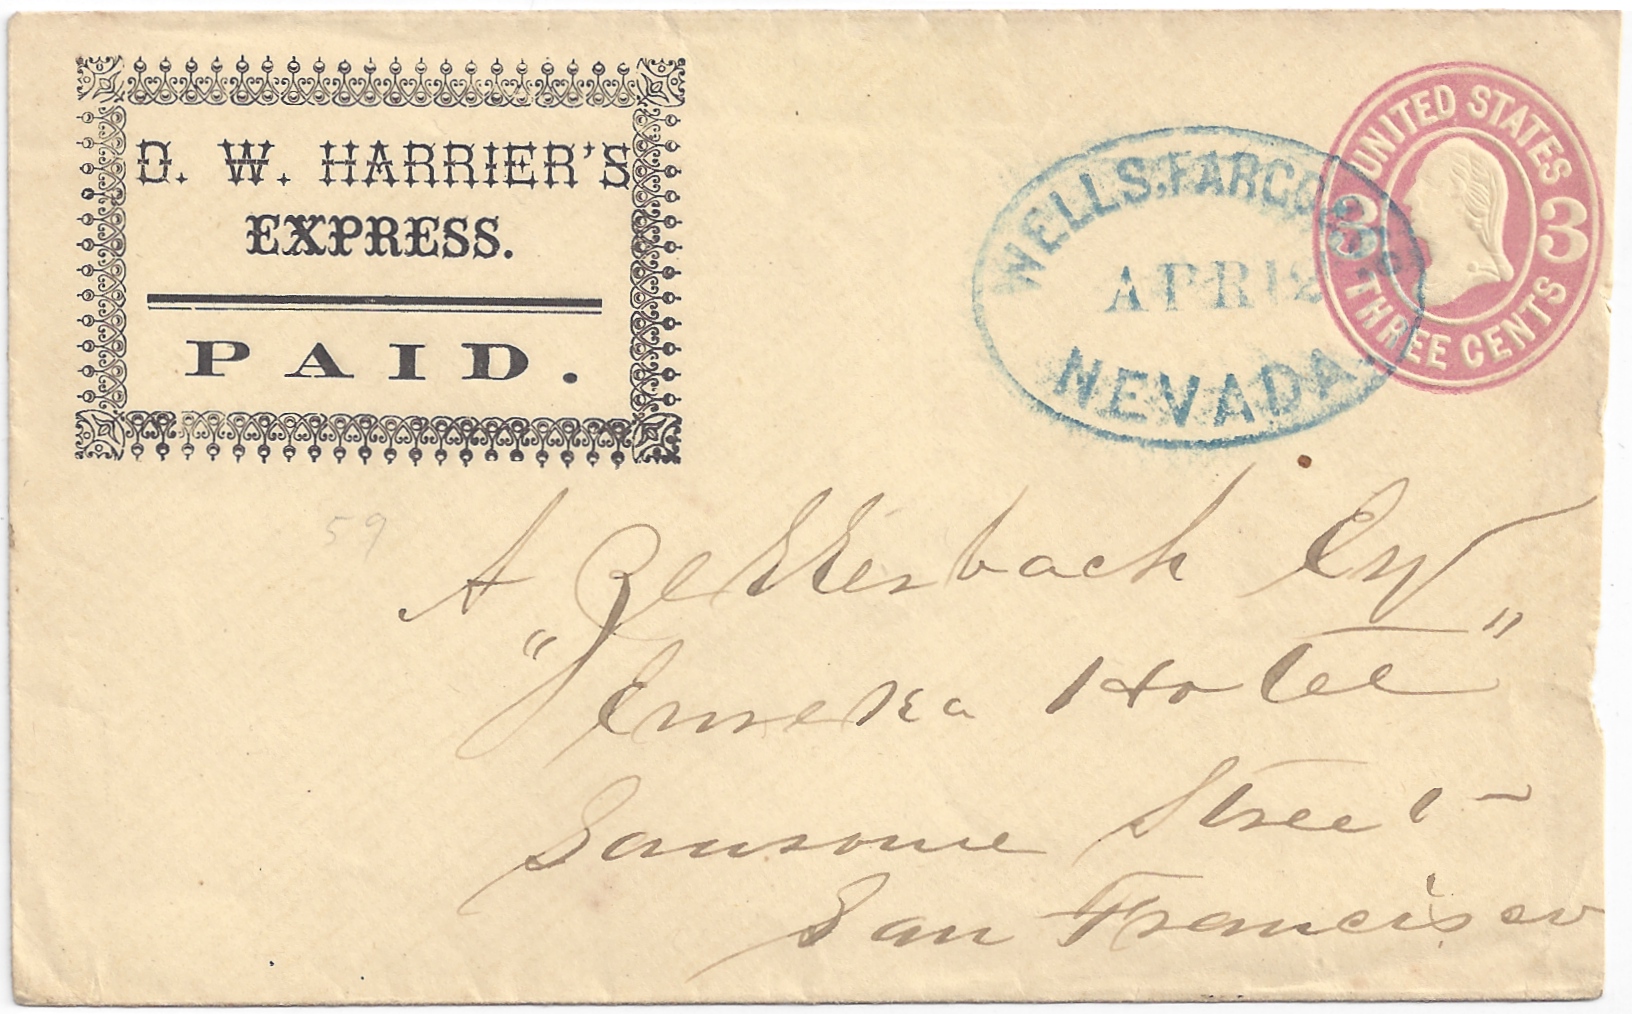 D. W. HARRIER'S
EXPRESS.
PAID.
WELLS, FARGO
APR 12
NEVADA.
UNITED STATES
3 3
THREE CENTS
59
A Zellerbach Esq
"Eureka Hotel"
Sansome Street
San Francisco